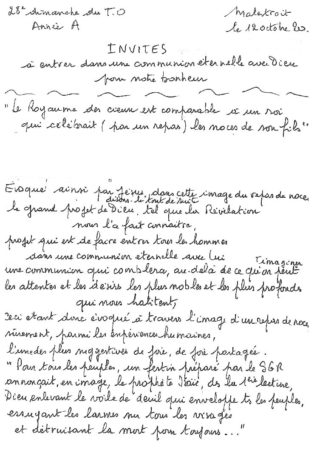 28e dimanche du T.O
Malestroit
Année A
le 12 octobre 20..
INVITES
à entrer dans une communion éternelle avec Dieu
pour notre bonheur
"Le Royaume des cieux est comparable à un roi
qui célébrait (par un repas) les noces de son fils"
Evoqué ainsi par Jésus, dans cette image du repas de noce
disons le tout de suite
le grand projet de Dieu, tel que la Révélation
nous l'a fait connaître,
projet qui est de faire entrer tous les hommes
dans une communion éternelle avec Lui
l'imaginer
une communion qui comblera, au-delà de ce qu'on peut
les attentes et les désirs les plus nobles et les plus profonds
qui nous habitent,
Ceci étant donc évoqué à travers l'image d'un repas de noce
sûrement, parmi les expériences humaines,
l'une des plus suggestives de joie, de joie partagée.
"Pour tous les peuples, un festin préparé par le SGR
annonçait, en image, le prophète Isaïe, ds la 1ère lecture,
Dieu enlevant le voile de deuil qui enveloppe ts les peuples,
essuyant les larmes sur tous les visages
et détruisant la mort pour toujours..."